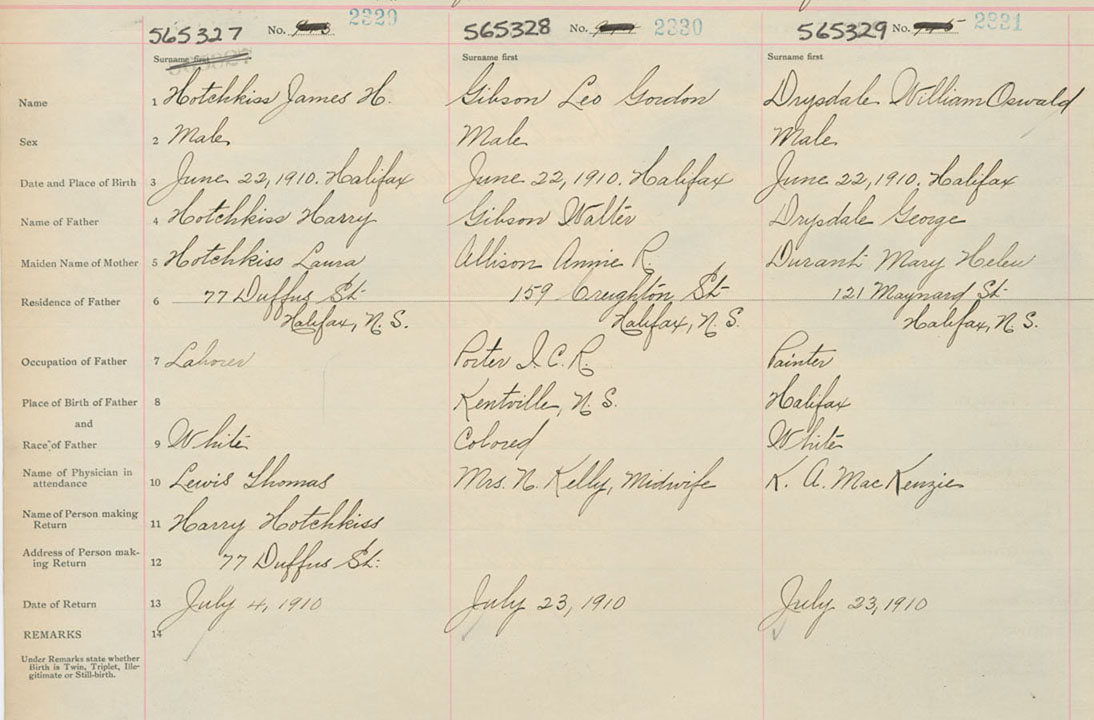 2329 2330 2331
565327 No. 565328 No. 565329 No.
Surname first Surname first Surname first
Name 1 Hotchkiss James H. Gibson Leo Gordon Drysdale William Oswald
Sex 2 Male Male Male
Date and Place of Birth 3 June 22, 1910. Halifax June 22, 1910. Halifax June 22, 1910. Halifax
Name of Father 4 Hotchkiss Harry Gibson Walter Drysdale George
Maiden Name of Mother 5 Hotchkiss Laura Allison Annie R. Durant Mary Helen
Residence of Father 6 77 Duffus St. 159 Creighton St 121 Maynard St.
Halifax, N.S. Halifax, N.S. Halifax, N.S.
Occupation of Father 7 Laborer Porter I.C.R. Painter
Place of Birth of Father 8 Kentville, N.S. Halifax
and
Race of Father 9 White Colored White
Name of Physician in
attendance 10 Lewis Thomas Mrs. N. Kelly, Midwife K. A. MacKenzie
Name of Person making
Return 11 Harry Hotchkiss
Address of Person mak-
ing Return 12 77 Duffus St.
Date of Return 13 July 4, 1910 July 23, 1910 July 23, 1910
REMARKS 14
Under Remarks state whether
Birth is Twin, Triplet, Ille-
gitimate or Still-birth.